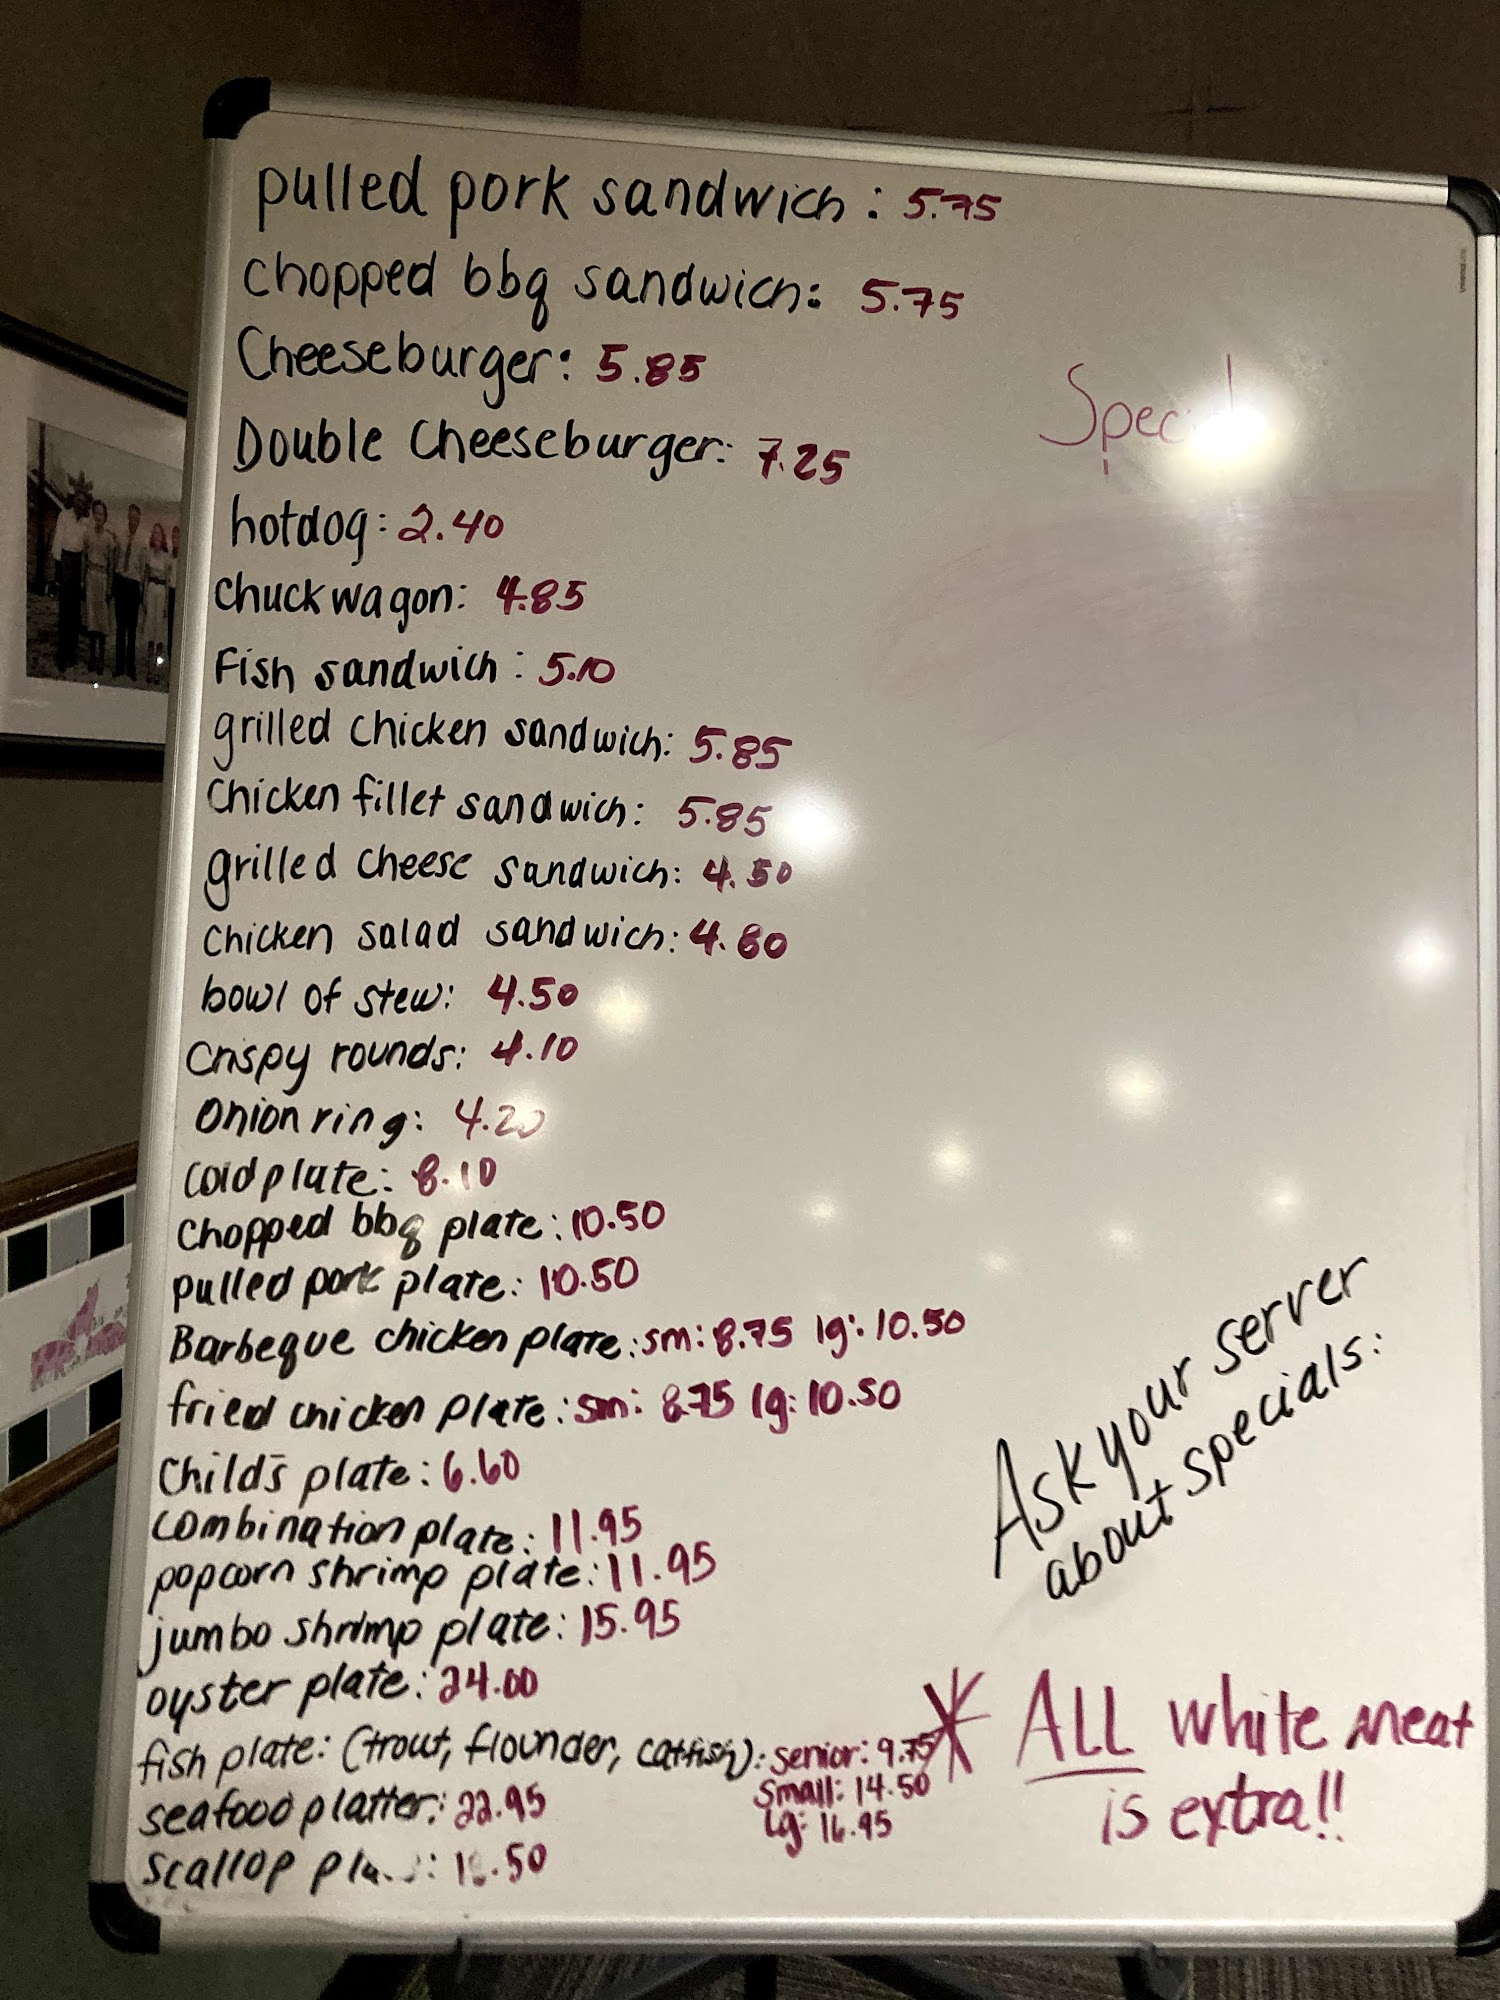 pulled pork sandwich: 5.75
chopped bbq sandwich: 5.75
Cheeseburger: 5.85
Double Cheeseburger: 7.25
hotdog: 2.40
chuckwagon: 4.85
Fish sandwich: 5.10
grilled chicken sandwich: 5.85
Chicken fillet sandwich: 5.85
grilled cheese sandwich: 4.50
Chicken salad sandwich: 4.80
bowl of stew: 4.50
Crispy rounds: 4.10
Onion ring: 4.20
cold plate: 8.10
Chopped bbq plate: 10.50
pulled pork plate: 10.50
Barbeque chicken plate: sm: 8.75 lg: 10.50
fried chicken plate: sm: 8.75 lg: 10.50
Child's plate: 6.60
combination plate: 11.95
popcorn shrimp plate: 11.95
jumbo shrimp plate: 15.95
oyster plate: 24.00
fish plate: (trout, flounder, catfish): senior: 9.75
small: 14.50
lg: 16.95
seafood platter: 22.95
scallop
Ask your server
about specials:
* ALL white meat
is extra!!